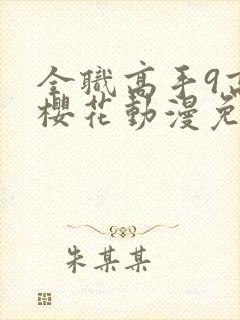 全職高手9高
櫻花動漫免
朱某某